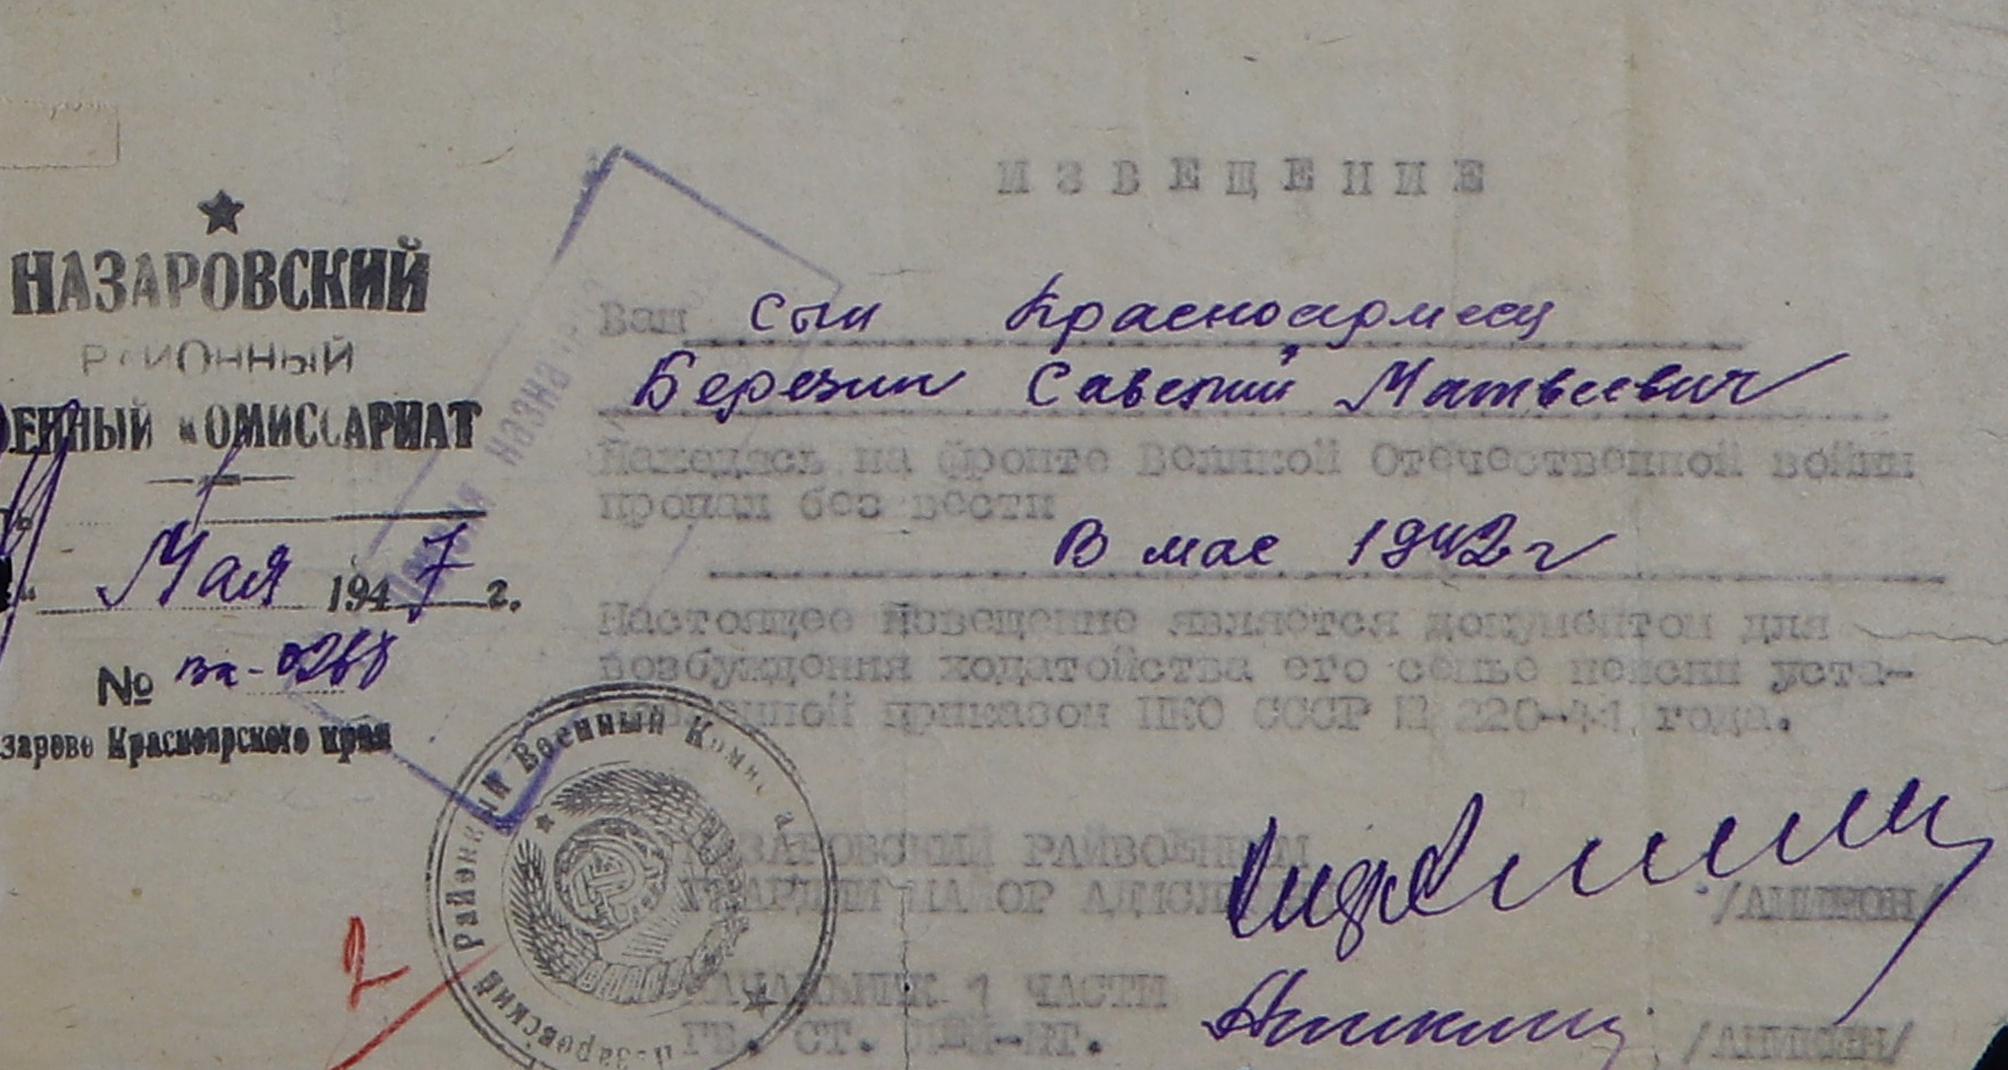 НАЗАРОВСКИЙ
РАЙОННЫЙ
ВОЕННЫЙ КОМИССАРИАТ
Мая 1947 г.
№
Красноярского края
ИЗВЕЩЕНИЕ
Ваш сын Красноармеец
Березин Савелий Матвеевич
Находясь на фронте Великой Отечественной войны
пропал без вести
В мае 1942 г
Настоящее извещение является документом для
возбуждения ходатойства его семье пенсии уста-
новленной приказом НКО СССР № 220-41 года.
НАЗАРОВСКИЙ РАЙВОЕНКОМ
ГВАРДИИ МАЙОР АДМ.СЛ
НАЧАЛЬНИК 1 ЧАСТИ
ГВ. СТ. ЛЕЙ-НТ. /АНИКИН/
Назаровский Районный Военный
2